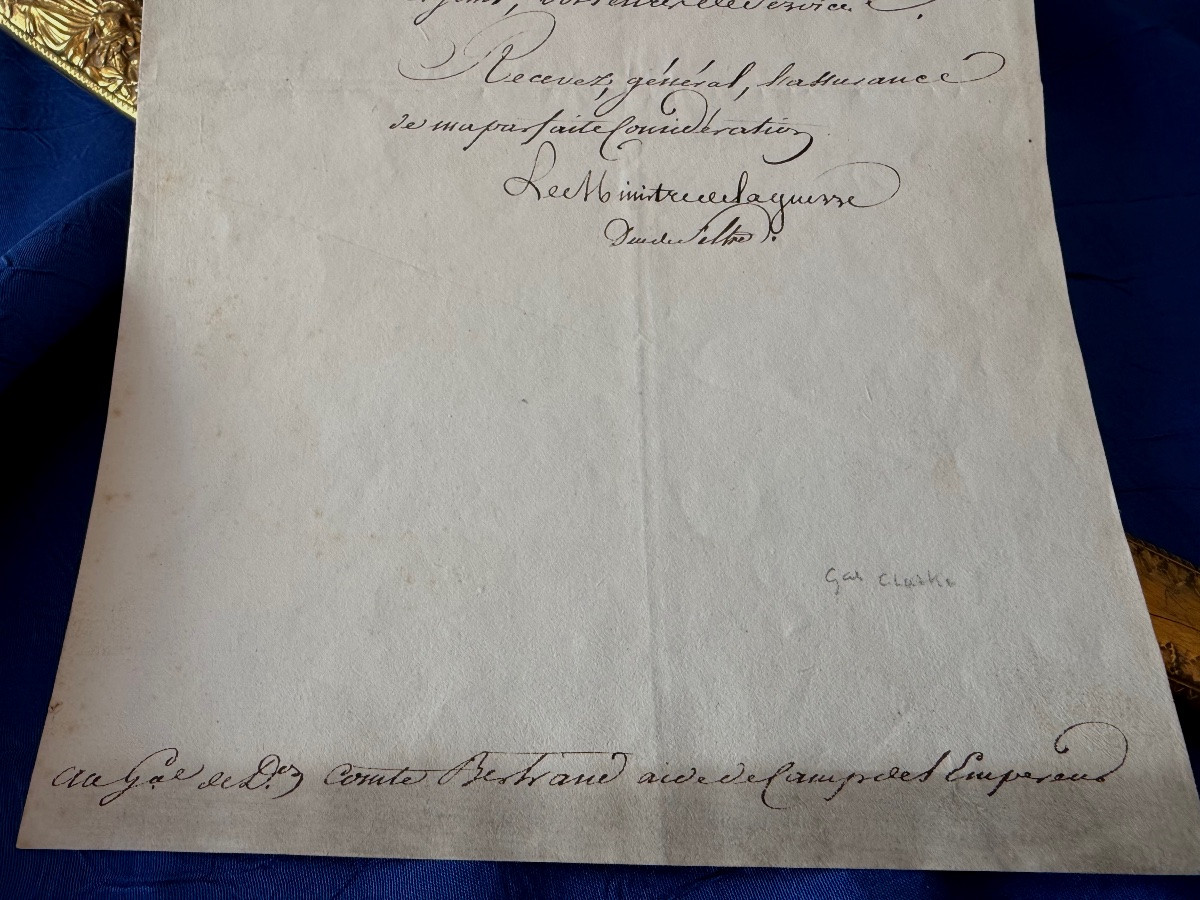 de service.
Recevez, général, l'assurance
de ma parfaite Considération
Le Ministre de la guerre
Duc de Feltre.
Gal Clarke
Au Gal de Don Comte Bertrand aide de Camp de l'Empereur